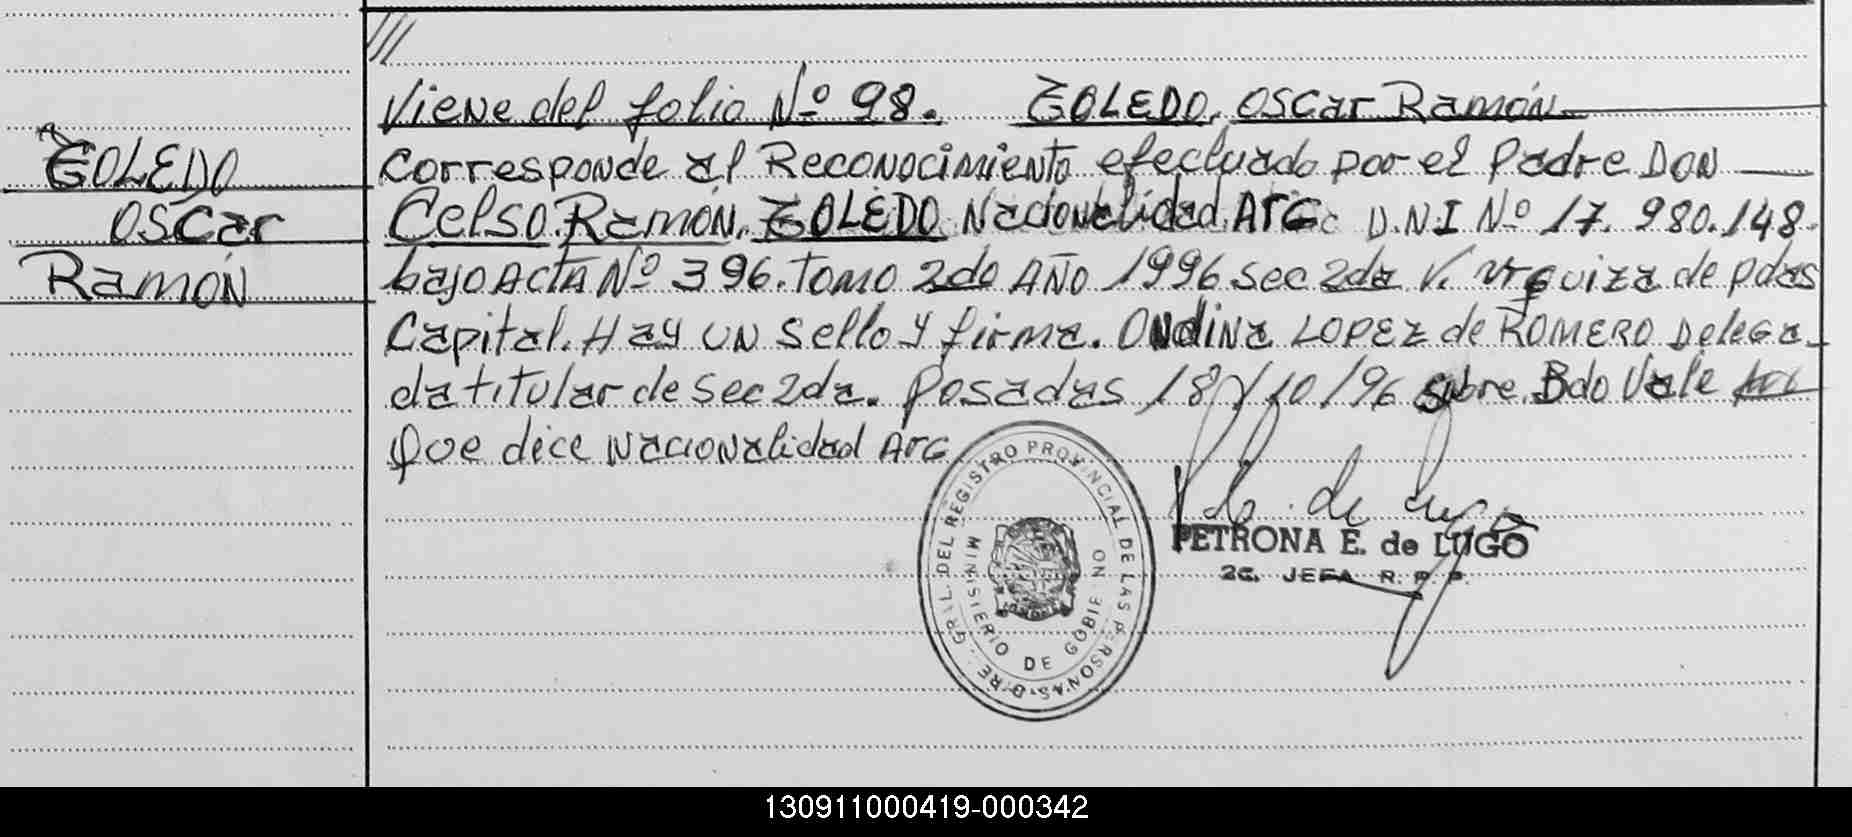 ///
Viene del folio Nº 98. TOLEDO, OSCar Ramón
TOLEDO
OSCar
Ramón
Corresponde al Reconocimiento efectuado por el Padre DON
Celso Ramón, TOLEDO Nacionalidad Arg. D.N.I Nº 17.980.148.
bajo Acta Nº 396. Tomo 2do AÑO 1996 Sec 2da V. Urquiza de pdas
Capital. Hay un Sello y firma. Ondina LOPEZ de ROMERO Delega-
da titular de Sec 2da. Posadas 18/10/96 sobre Bdo Vale
Que dice Nacionalidad Arg
GRAL. DEL REGISTRO PROVINCIAL DE LAS PERSONAS
MINISTERIO DE GOBIERNO
de Lugo
PETRONA E. de LUGO
2C. JEFA R. P. P.
130911000419-000342